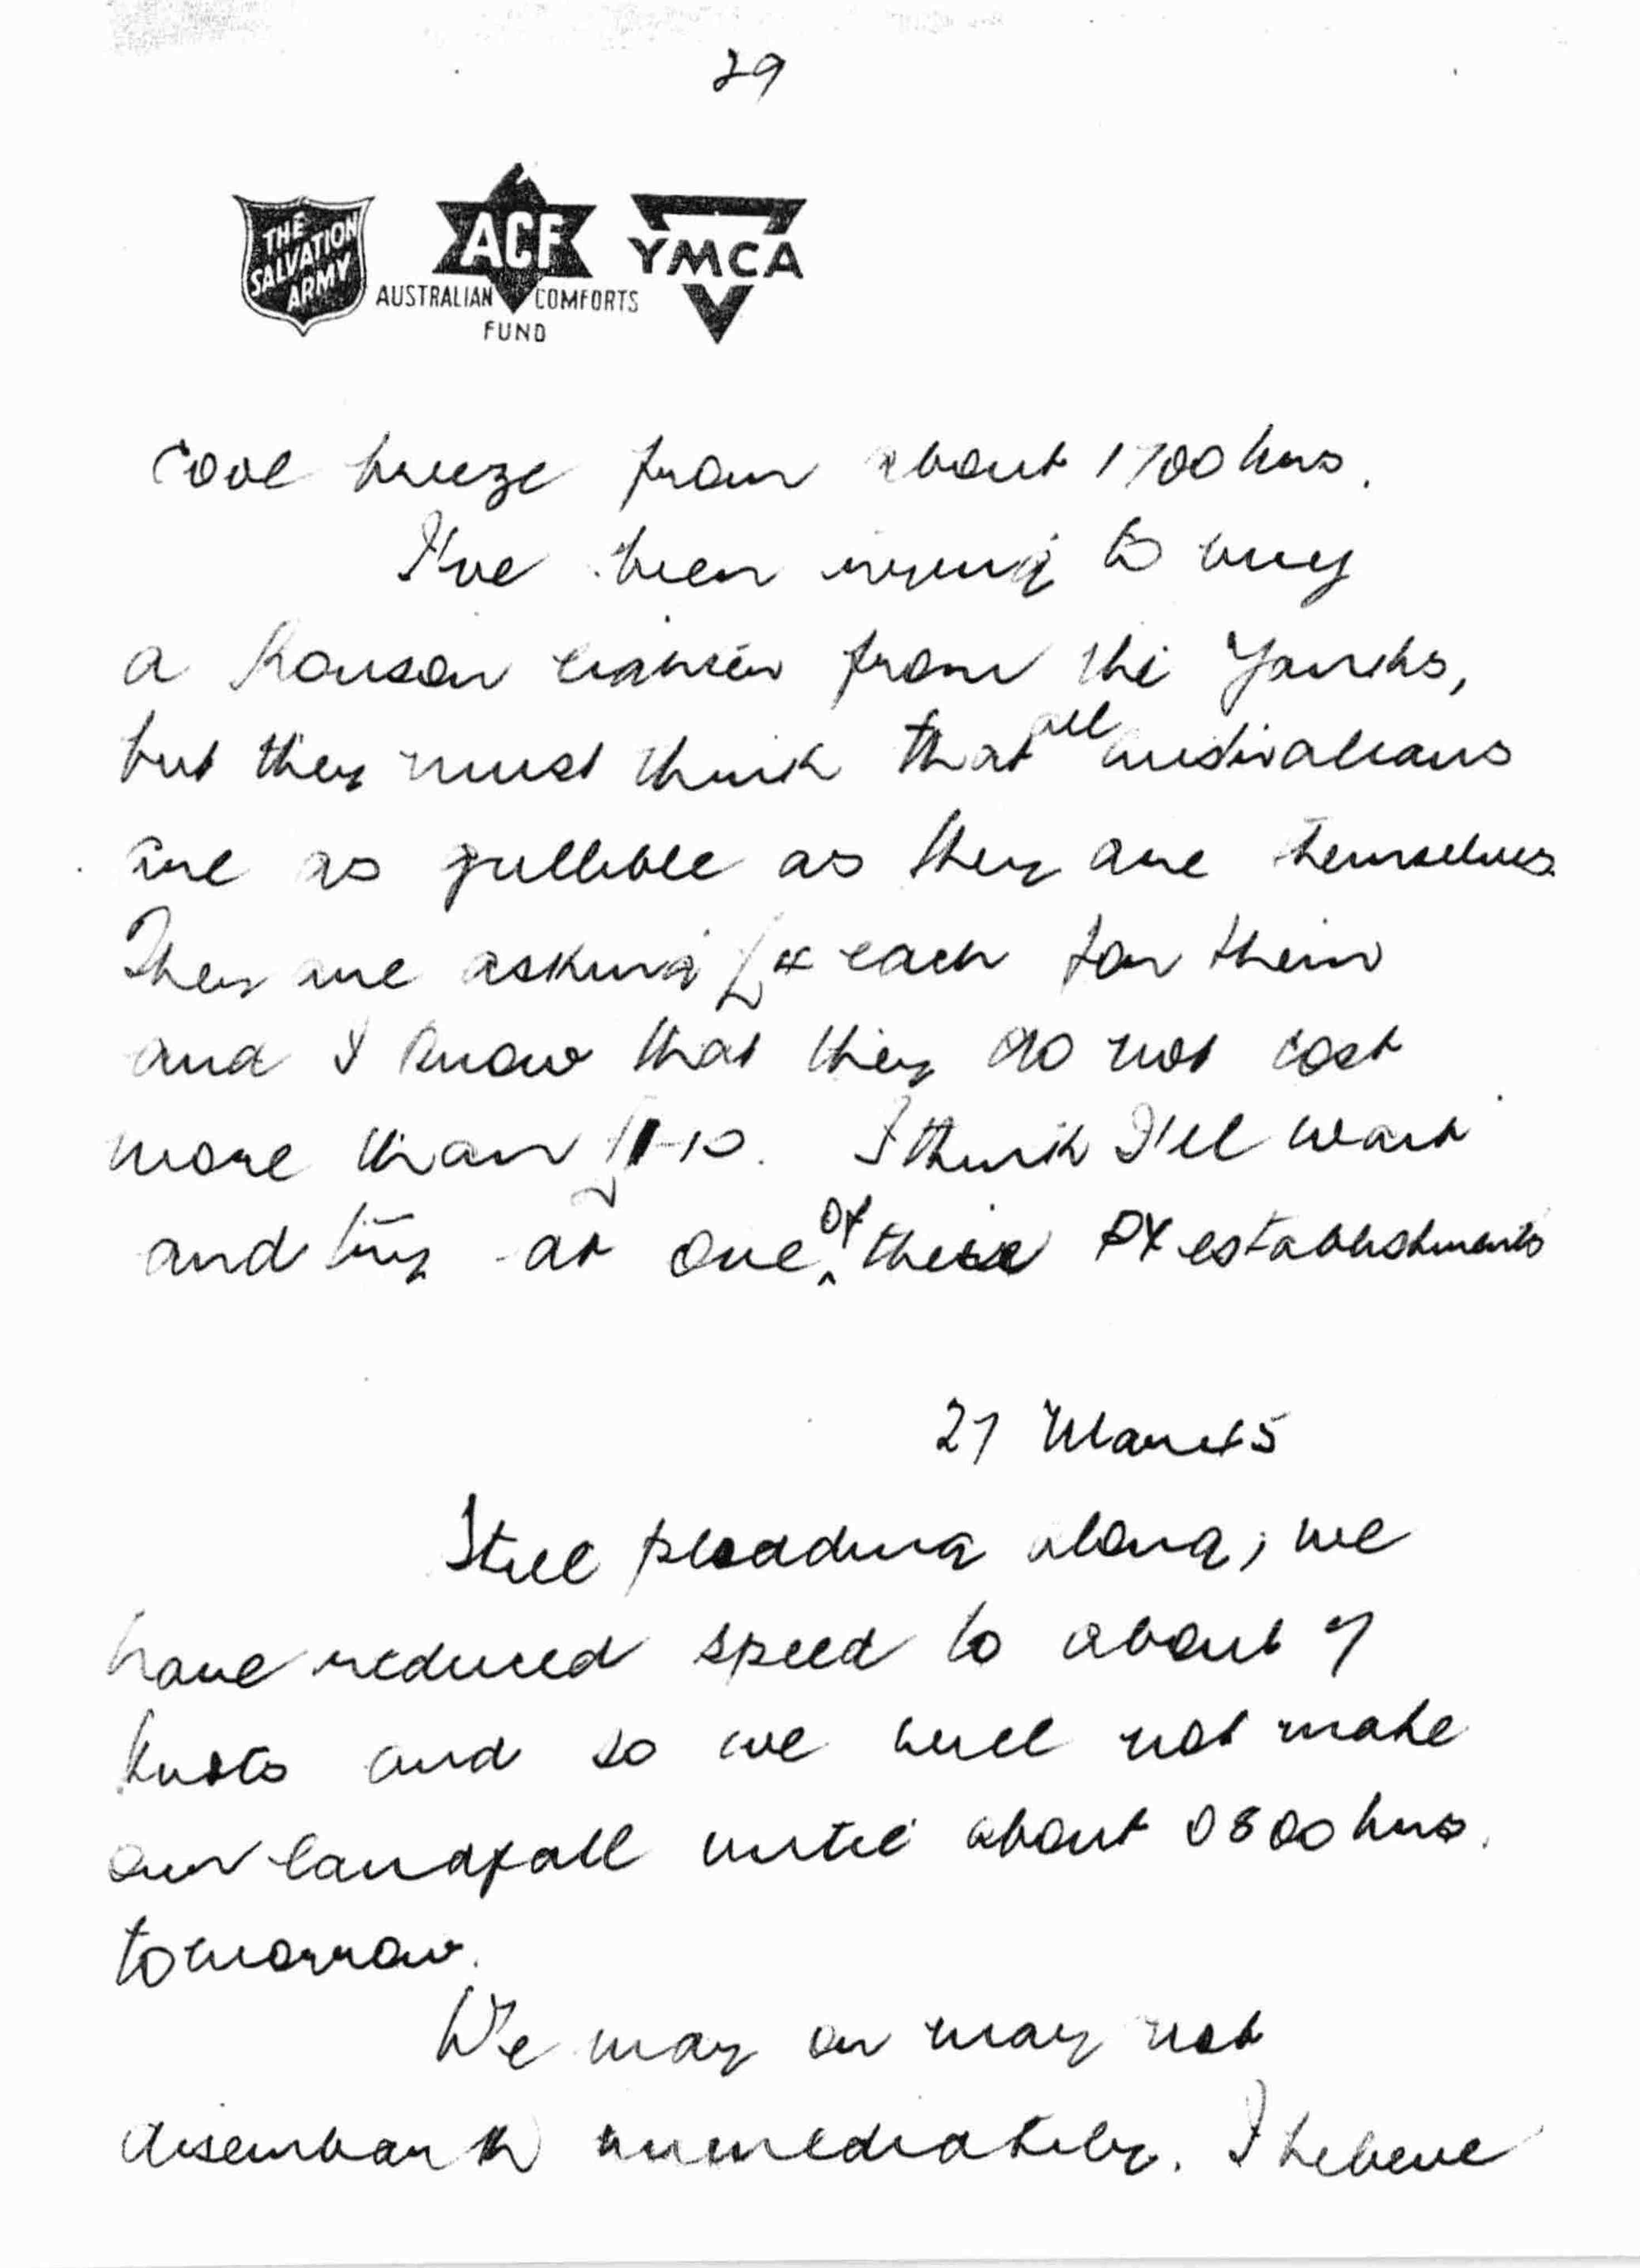 29
THE SALVATION ARMY
ACF
AUSTRALIAN COMFORTS FUND
YMCA
cool breeze from about 1700 hrs.
I've been trying to buy
a Ronson lighter from the Yanks,
but they must think that all Australians
are as gullible as they are themselves.
They are asking £ each for them
and I know that they do not cost
more than £1-10. I think I'll wait
and try at one of their PX establishments
27 Mar 45
Still plodding along, we
have reduced speed to about 7
knots and so we will not make
our landfall until about 0800 hrs.
tomorrow.
We may or may not
disembark immediately. I believe